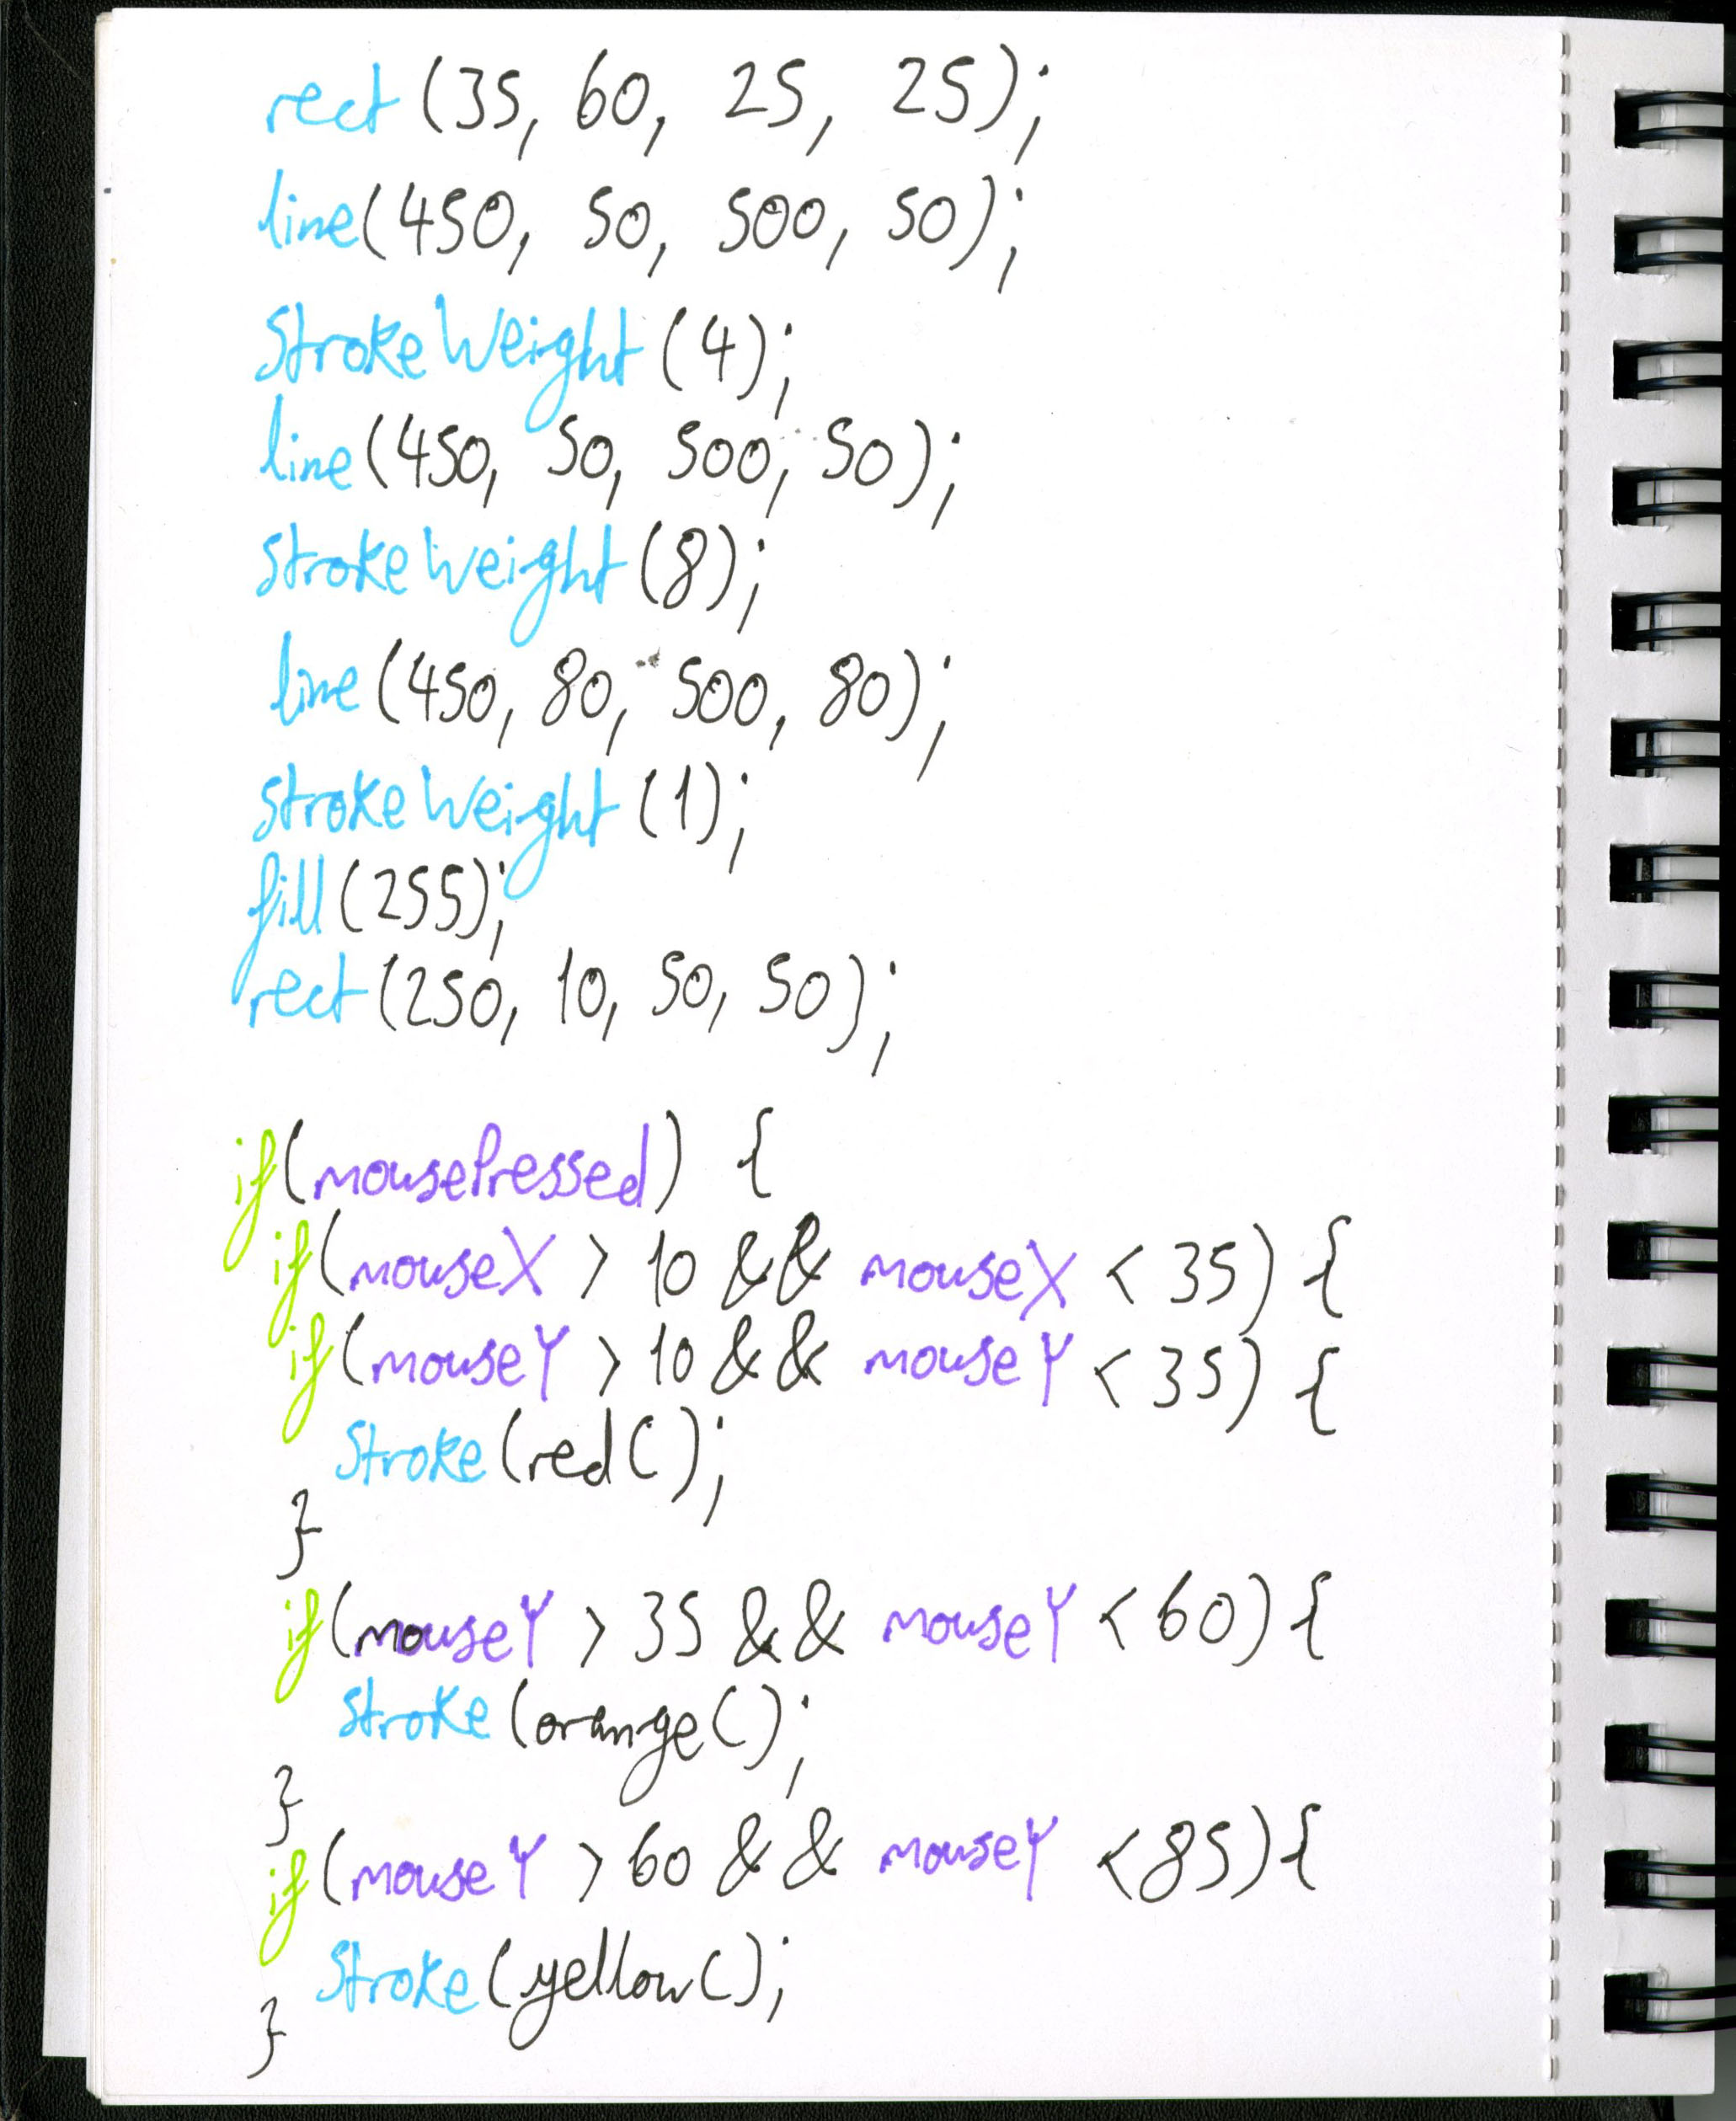 rect (35, 60, 25, 25);
line(450, 50, 500, 50);
StrokeWeight (4);
line (450, 50, 500, 50);
strokeWeight (8);
line (450, 80, 500, 80);
strokeWeight (1);
fill (255);
rect (250, 10, 50, 50);
if (mousePressed) {
if (mouseX > 10 && mouseX < 35) {
if (mouseY > 10 && mouseY < 35) {
Stroke (red C);
}
if (mouseY > 35 && mouseY < 60) {
Stroke (orange C);
}
if (mouseY > 60 && mouseY < 85) {
Stroke (yellow C);
}